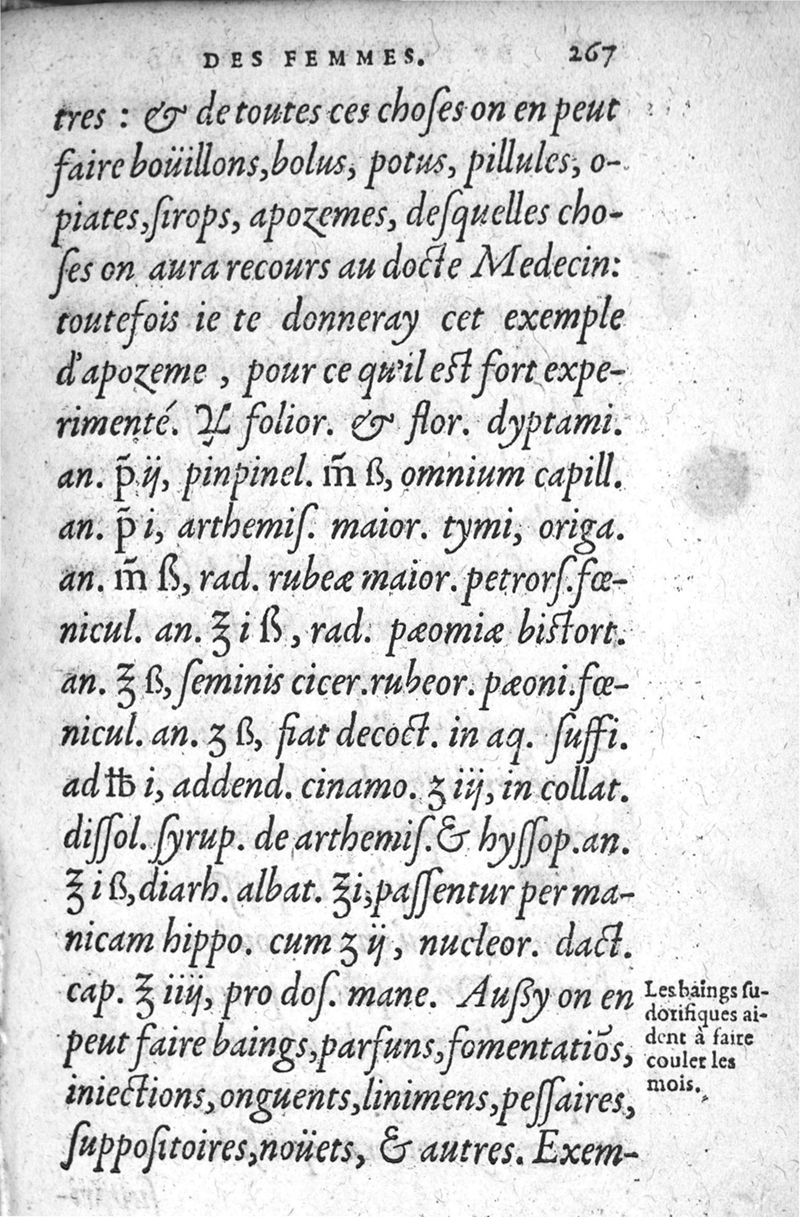 DES FEMMES. 267
tres : & de toutes ces choſes on en peut
faire boüillons, bolus, potus, pillules, o-
piates, ſirops, apozemes, deſquelles cho-
ſes on aura recours au docte Medecin:
toutefois ie te donneray cet exemple
d'apozeme , pour ce qu'il eſt fort expe-
rimenté. ℞ folior. & flor. dyptami.
an. p̃ ij, pinpinel. m̃ ß, omnium capill.
an. p̃ i, arthemiſ. maior. tymi, origa.
an. m̃ ß, rad. rubeæ maior. petrorſ. fœ-
nicul. an. ℥ i ß, rad. pæomiæ biſtort.
an. ℥ ß, ſeminis cicer. rubeor. pæoni. fœ-
nicul. an. ʒ ß, fiat decoct. in aq. ſuffi.
ad ℔ i, addend. cinamo. ʒ iij, in collat.
diſſol. ſyrup. de arthemiſ. & hyſſop. an.
℥ i ß, diarh. albat. ℥ i, paſſentur per ma-
nicam hippo. cum ʒ ij, nucleor. dact.
cap. ℥ iiij, pro doſ. mane. Außy on en
peut faire baings, parfuns, fomentatiõs,
iniections, onguents, linimens, peſſaires,
ſuppoſitoires, noüets, & autres. Exem-
Les baings ſu-
dorifiques ai-
dent à faire
couler les
mois.